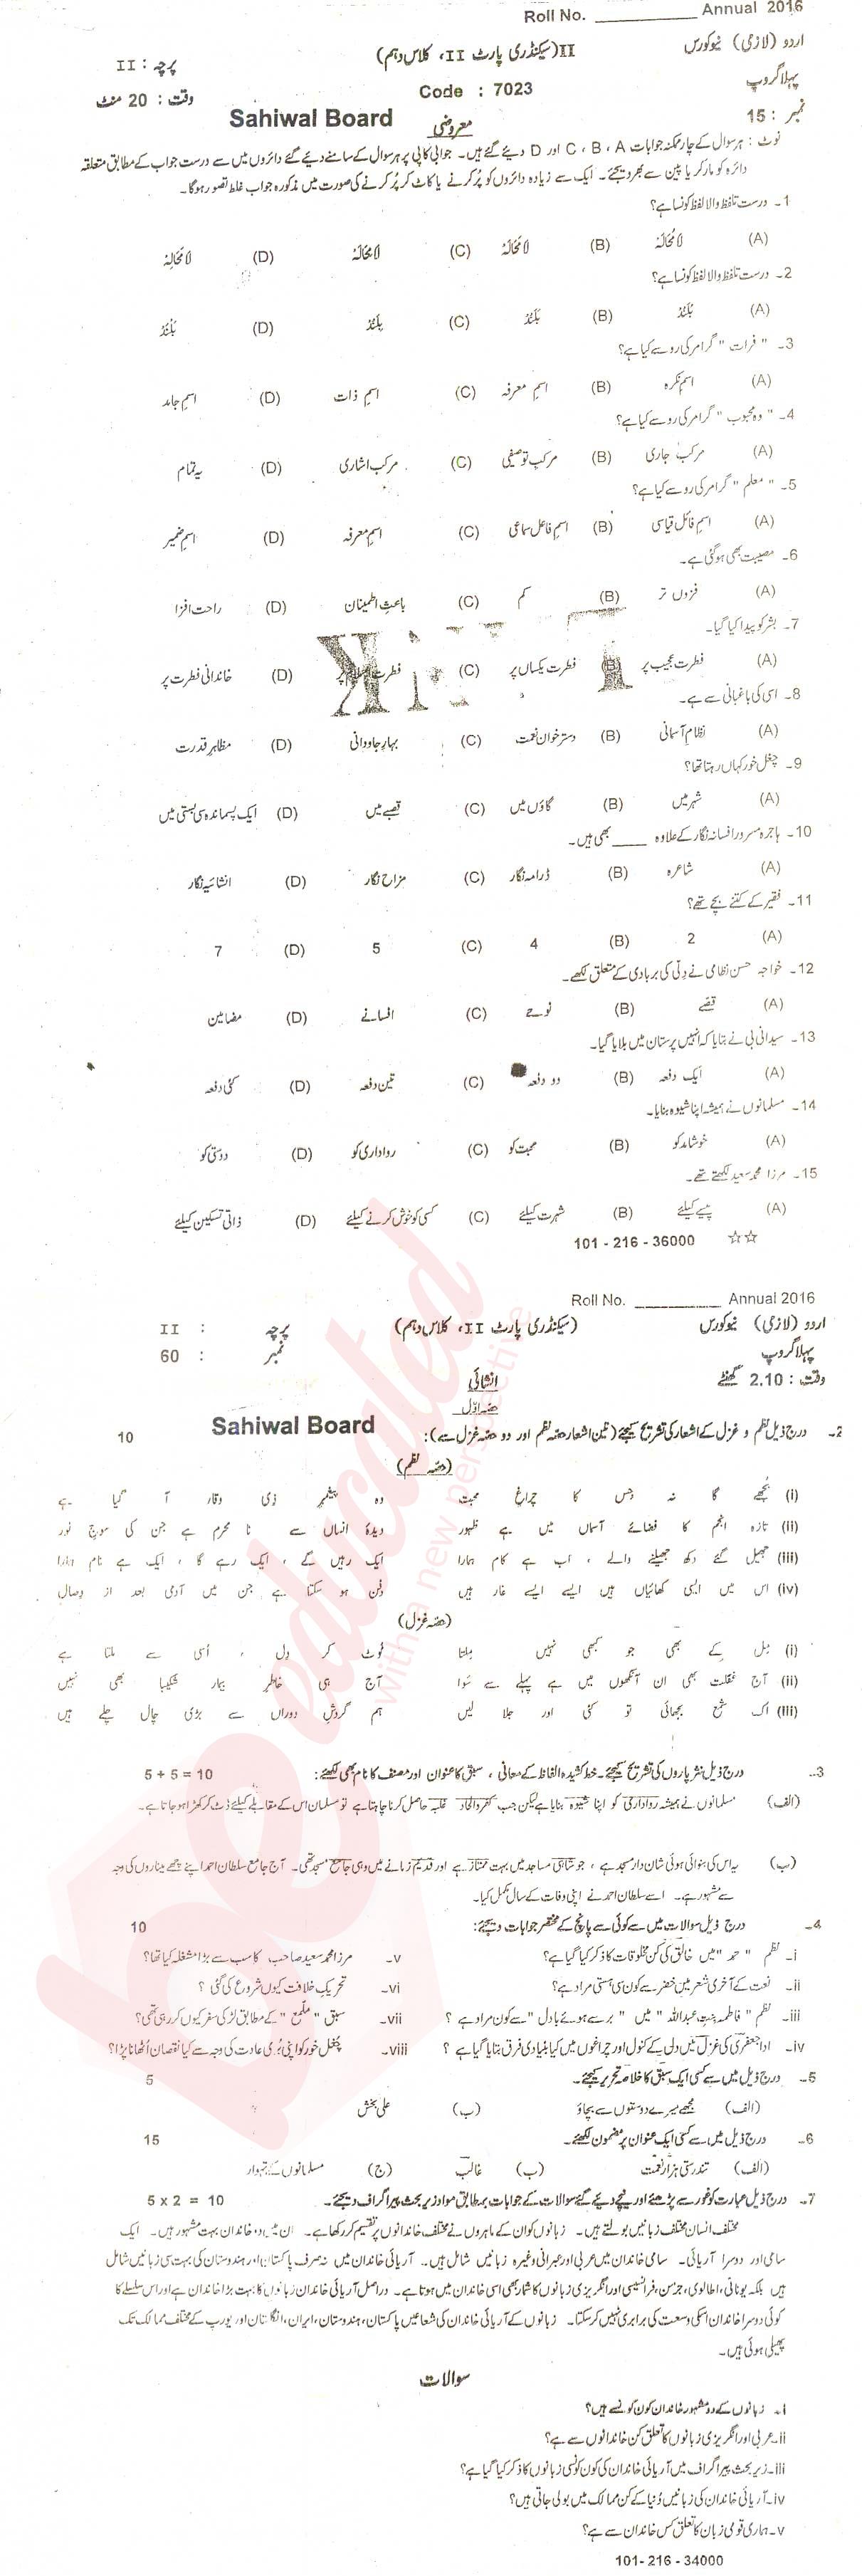 Roll No. __________ Annual 2016
اردو (لازمی) نیوکورس II(سیکنڈری پارٹ II، کلاس دہم) پرچہ : II
پہلاگروپ Code : 7023 وقت : 20 منٹ
نمبر : 15 معروضی Sahiwal Board
نوٹ : ہرسوال کے چار ممکنہ جوابات A ، B ، C اور D دیئے گئے ہیں۔ جوابی کاپی پر ہرسوال کے سامنے دیئے گئے دائروں میں سے درست جواب کے مطابق متعلقہ
دائرہ کو مارکر یا پین سے بھر دیجئے۔ ایک سے زیادہ دائروں کو پُر کرنے یا کاٹ کر پُر کرنے کی صورت میں مذکورہ جواب غلط تصور ہوگا۔
1۔ درست تلفظ والا لفظ کونسا ہے؟
(A) (B) (C) (D)
2۔ درست تلفظ والا لفظ کونسا ہے؟
(A) (B) (C) (D)
3۔ "فرات" گرامر کی رو سے کیا ہے؟
(A) اسم نکرہ (B) اسم معرفہ (C) اسم ذات (D) اسم جامد
4۔ "وہ محبوب" گرامر کی رو سے کیا ہے؟
(A) مرکب جاری (B) مرکب توصیفی (C) مرکب اشاری (D) یہ تمام
5۔ "معلم" گرامر کی رو سے کیا ہے؟
(A) اسم فائل قیاسی (B) اسم فاعل سماعی (C) اسم معرفہ (D) اسم ضمیر
6۔ مصیبت بھی ہوگئی ہے۔
(A) فزوں تر (B) کم (C) باعثِ اطمینان (D) راحت افزا
7۔ بشر کو پیدا کیا گیا۔
(A) فطرت عجیب پر (B) فطرت یکساں پر (C) فطرت پر (D) خاندانی فطرت پر
8۔ اسی کی باغبانی سے ہے۔
(A) نظامِ آسمانی (B) دسترخوان نعمت (C) بہارِ جاودانی (D) مظاہرِ قدرت
9۔ چغل خور کہاں رہتا تھا؟
(A) شہر میں (B) گاؤں میں (C) قصبے میں (D) ایک پسماندہ سی بستی میں
10۔ ہاجرہ مسرور افسانہ نگار کے علاوہ ____ بھی ہیں۔
(A) شاعرہ (B) ڈرامہ نگار (C) مزاح نگار (D) انشائیہ نگار
11۔ فقیر کے کتنے بچے تھے؟
(A) 2 (B) 4 (C) 5 (D) 7
12۔ خواجہ حسن نظامی نے دِلّی کی بربادی کے متعلق لکھے۔
(A) قصّے (B) نوحے (C) افسانے (D) مضامین
13۔ سیدانی بی نے بتایا کہ انہیں پرستان میں بلایا گیا۔
(A) ایک دفعہ (B) دو دفعہ (C) تین دفعہ (D) کئی دفعہ
14۔ مسلمانوں نے ہمیشہ اپنا شیوہ بنایا۔
(A) خوشامد کو (B) محبت کو (C) رواداری کو (D) دوستی کو
15۔ مرزا محمد سعید لکھتے تھے۔
(A) پیسے کیلئے (B) شہرت کیلئے (C) کسی کو خوش کرنے کیلئے (D) ذاتی تسکین کیلئے
101 - 216 - 36000 ☆☆
Roll No. __________ Annual 2016
اردو (لازمی) نیوکورس (سیکنڈری پارٹ II، کلاس دہم) پرچہ : II
پہلاگروپ نمبر : 60
وقت : 2.10 گھنٹے انشائی
حصہ اوّل
Sahiwal Board
2۔ درج ذیل نظم و غزل کے اشعار کی تشریح کیجئے (تین اشعار حصہ نظم اور دو حصہ غزل سے): 10
(حصہ نظم)
(i) بُجھے گا نہ جس کا چراغِ محبت وہ پیغمبرِ ذی وقار آ گیا ہے
(ii) تازہ انجم کا فضائے آسماں میں ہے ظہور دیدۂ انساں سے نا محرم ہے جن کی موجِ نور
(iii) جھیل گئے دکھ جھیلنے والے ، اب ہے کام ہمارا ایک رہیں گے ، ایک رہے گا ، ایک ہے نام ہمارا
(iv) اس میں ایسی کھائیاں ہیں ایسے ایسے غار ہیں دفن ہو سکتا ہے جن میں آدمی بعد از وصال
(حصہ غزل)
(i) مِل کے بھی جو کبھی نہیں ملتا ٹوٹ کر دل ، اُسی سے ملتا ہے
(ii) آج غفلت بھی ان آنکھوں میں ہے پہلے سے سوا آج ہی خاطرِ بیمار شکیبا بھی نہیں
(iii) اک شمع بجھائی تو کئی اور جلا لیں ہم گردشِ دوراں سے بڑی چال چلے ہیں
3۔ درج ذیل نثر پاروں کی تشریح کیجئے۔ خط کشیدہ الفاظ کے معانی ، سبق کا عنوان اور مصنف کا نام بھی لکھئے : 5 + 5 = 10
(الف) مسلمانوں نے ہمیشہ رواداری کو اپنا شیوہ بنایا ہے لیکن جب کفر و الحاد غلبہ حاصل کرنا چاہتا ہے تو مسلمان اس کے مقابلے کیلئے ڈٹ کر کھڑا ہو جاتا ہے۔
(ب) یہ اس کی بنوائی ہوئی شان دار مسجد ہے ، جو شاہی مساجد میں بہت ممتاز ہے اور قدیم زمانے میں وہی جامع مسجد تھی۔ آج جامع سلطان احمد اپنے چھے میناروں کی وجہ
سے مشہور ہے۔ اسے سلطان احمد نے اپنی وفات کے سال مکمل کیا۔
4۔ درج ذیل سوالات میں سے کوئی سے پانچ کے مختصر جوابات دیجئے : 10
i۔ نظم "حمد" میں خالق کی کن مخلوقات کا ذکر کیا گیا ہے؟ v۔ مرزا محمد سعید صاحب کا سب سے بڑا مشغلہ کیا تھا؟
ii۔ نعت کے آخری شعر میں خضر سے کون سی ہستی مراد ہے؟ vi۔ تحریکِ خلافت کیوں شروع کی گئی ؟
iii۔ نظم "فاطمہ بنتِ عبداللہ" میں "برسے ہوئے بادل" سے کون مراد ہے ؟ vii۔ سبق "ملمّع" کے مطابق لڑکی سفر کیوں کر رہی تھی؟
iv۔ ادا جعفری کی غزل میں دلی کے کنول اور چراغوں میں کیا بنیادی فرق بتایا گیا ہے ؟ viii۔ چغل خور کو اپنی بُری عادت کی وجہ سے کیا نقصان اُٹھانا پڑا؟
5۔ درج ذیل میں سے کسی ایک سبق کا خلاصہ تحریر کیجئے۔ 5
(الف) مجھے میرے دوستوں سے بچاؤ (ب) علی بخش
6۔ درج ذیل میں سے کسی ایک عنوان پر مضمون لکھئے۔ 15
(الف) تندرستی ہزار نعمت (ب) غالب (ج) مسلمانوں کے تہوار
7۔ درج ذیل عبارت کو غور سے پڑھئے اور نیچے دیئے گئے سوالات کے جوابات بمطابق مواد زیرِ بحث پیراگراف دیجئے۔ 5 x 2 = 10
مختلف انسان مختلف زبانیں بولتے ہیں۔ زبانوں کو ان کے ماہروں نے مختلف خاندانوں پر تقسیم کر رکھا ہے۔ ان میں دو خاندان بہت مشہور ہیں۔ ایک
سامی اور دوسرا آریائی۔ سامی خاندان میں عربی اور عبرانی وغیرہ زبانیں شامل ہیں۔ آریائی خاندان میں نہ صرف پاکستان اور ہندوستان کی بہت سی زبانیں شامل
ہیں بلکہ یونانی، اطالوی، جرمن، فرانسیسی اور انگریزی زبانوں کا شمار بھی اسی خاندان میں ہوتا ہے۔ دراصل آریائی خاندان زبانوں کا بہت بڑا خاندان ہے اور اس سلسلے کا
کوئی دوسرا خاندان اسکی وسعت کی برابری نہیں کر سکتا۔ زبانوں کے آریائی خاندان کی شعاعیں پاکستان، ہندوستان، ایران، انگلستان اور یورپ کے مختلف ممالک تک
پھیلی ہوئی ہیں۔
سوالات
i۔ زبانوں کے دو مشہور خاندان کون کونسے ہیں؟
ii۔ عربی اور انگریزی زبانوں کا تعلق کن خاندانوں سے ہے؟
iii۔ زیرِ بحث پیراگراف میں آریائی خاندان کی کون کونسی زبانوں کا ذکر کیا گیا ہے؟
iv۔ آریائی خاندان کی زبانیں دُنیا کے کن ممالک میں بولی جاتی ہیں؟
v۔ ہماری قومی زبان کا تعلق کس خاندان سے ہے؟
101- 216 - 34000
beeducated
with a new perspective